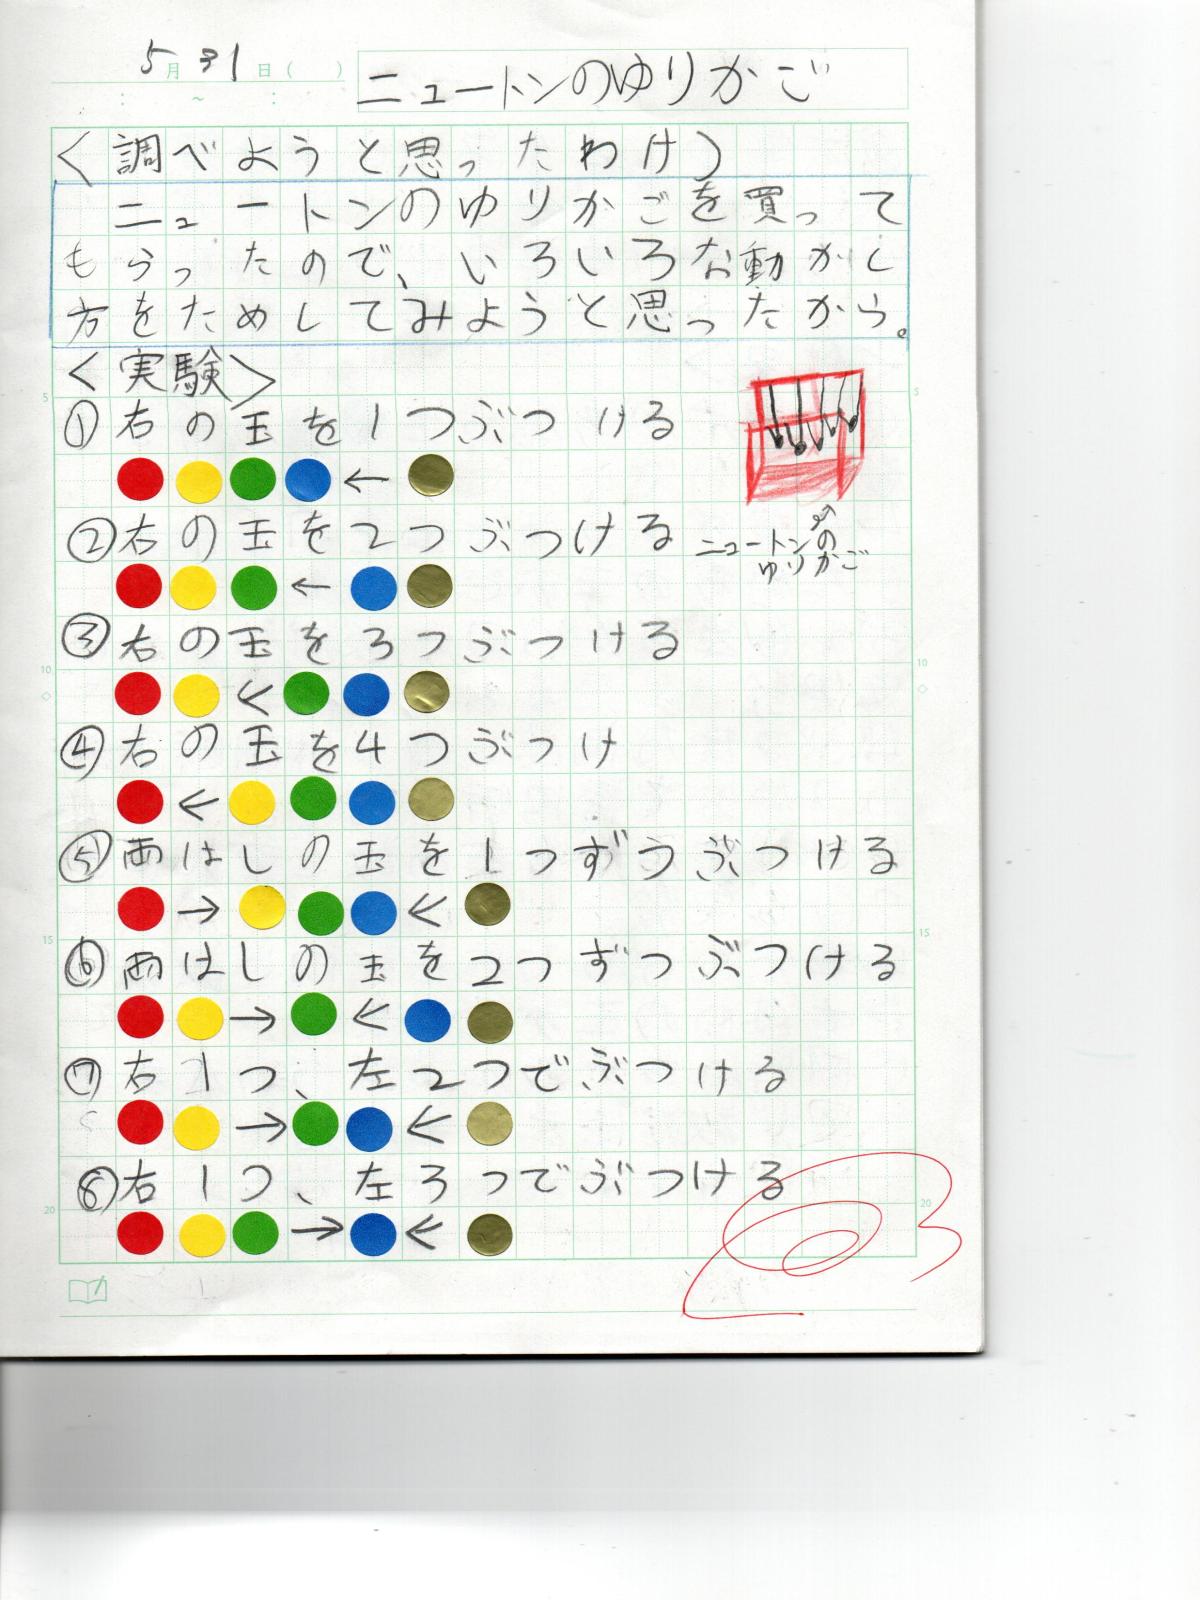 5月31日( )
ニュートンのゆりかご
: ~ :
<調べようと思ったわけ>
ニュートンのゆりかごを買って
もらったので、いろいろな動かし
方をためしてみようと思ったから。
<実験>
5 5
①右の玉を1つぶつける
②右の玉を2つぶつける
ニュートンの
ゆりかご
③右の玉を3つぶつける
10 10
④右の玉を4つぶつけ
⑤両はしの玉を1つずうぶつける
15 15
⑥両はしの玉を2つずつぶつける
⑦右1つ、左2つでぶつける
⑧右1つ、左3つでぶつける
20 20